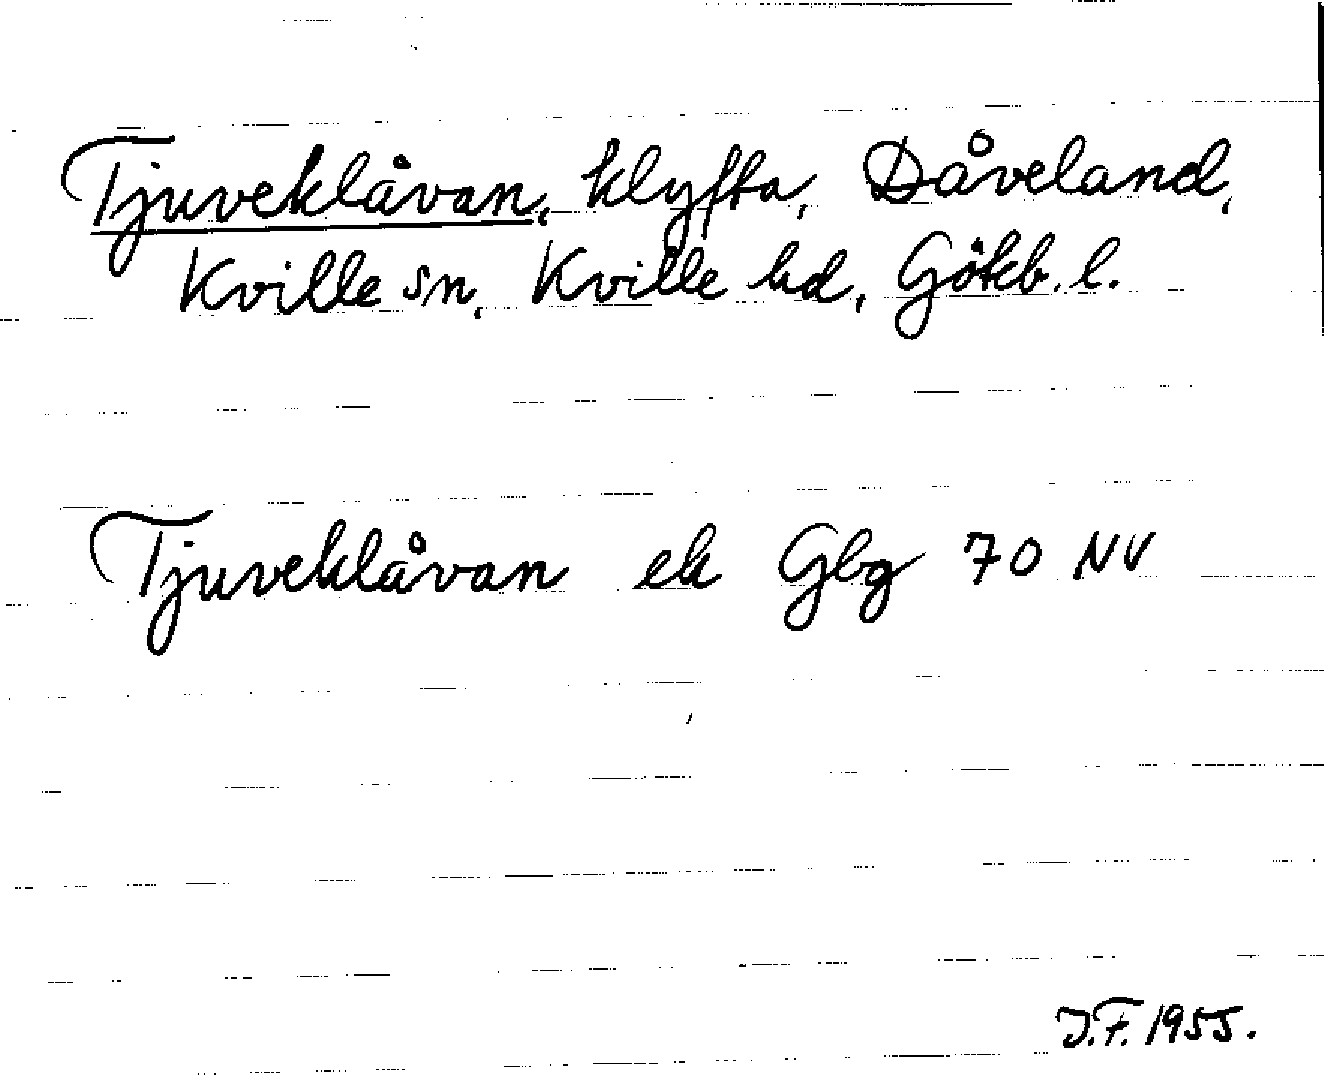 Tjuveklåvan, klyfta, Dåveland,
Kville sn, Kville hd, Götkb. l.
Tjuveklåvan ek Gbg 70 NV
J.F. 1955.